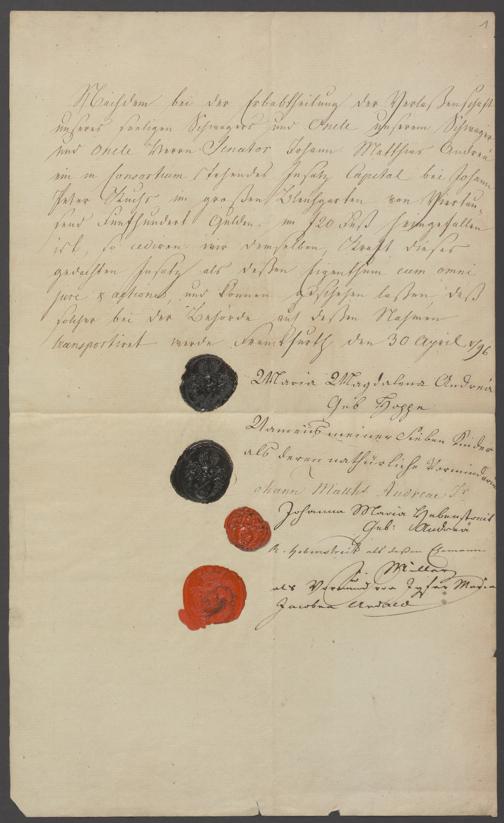 1
Nachdem bei der Erbabtheilung der Verlaßenschaft
unseres seeligen Schwagers und Oncle unserem Schwager
und Oncle Herrn Senator Johann Matthias Andreä
ein in Consortium stehendes Insatz Capital bei Johann
Peter im großen Bleichgarten von Viertau-
send Fünfhundert Gulden im f20 Fuß heimgefallen
ist, so cediren wir demselben, Kraft dieses
gedachten Insatz als deßen Eigenthum cum omni
jure & actione, und können geschehen laßen daß
solcher bei der Behörde auf deßen Nahmen
transportiret werde Franckfurth den 30 April 1796
Maria Magdalena Andreä
Geb Hoppe
Namens meiner Sieben Kinder
als deren nathürliche Vormünderin
Johann Matths Andreae Jr
Johanna Maria Hebenstreit
Geb: Andreä
Hebenstreit als deßen Ehemann
Müller
als Vormund von Jgfer Maria
Jacobea